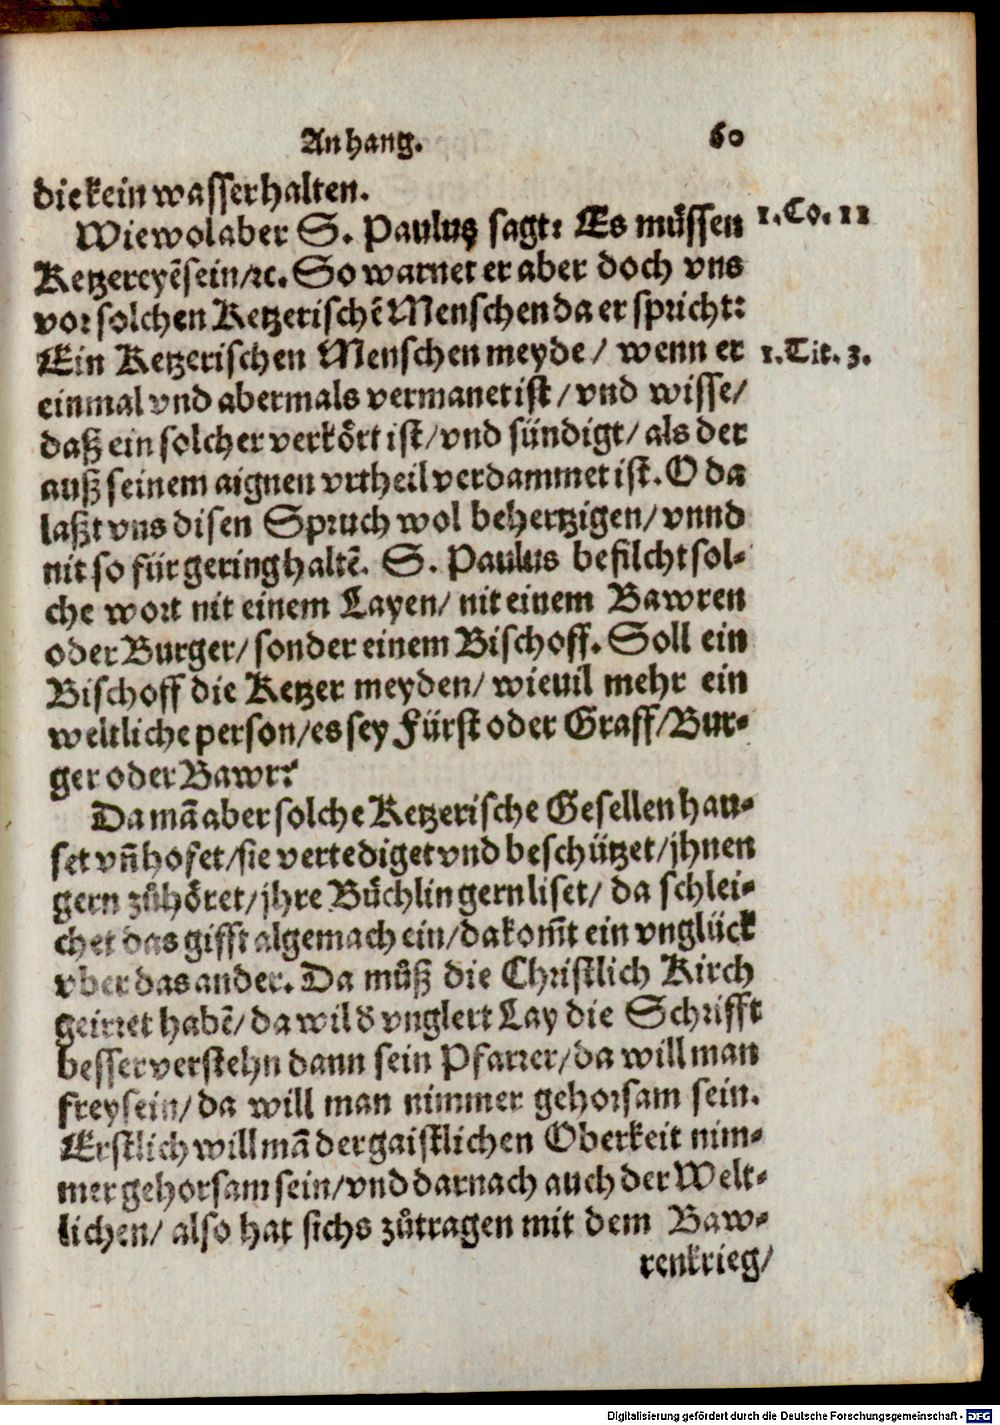 Anhang. 60
die kein wasser halten.
Wiewol aber S. Paulus sagt: Es müssen
1. Co. 11
Ketzereyẽ sein/ꝛc. So warnet er aber doch vns
vor solchen Ketzerischẽ Menschen da er spricht:
Ein Ketzerischen Menschen meyde / wenn er
1. Tit. 3.
einmal vnd abermals vermanet ist / vnd wisse/
daß ein solcher verkört ist/vnd sündigt/ als der
auß seinem aignen vrtheil verdammet ist. O da
laßt vns disen Spruch wol behertzigen/ vnnd
nit so für gering haltẽ. S. Paulus befilcht sol-
che wort nit einem Layen/ nit einem Bawren
oder Burger/ sonder einem Bischoff. Soll ein
Bischoff die Ketzer meyden/ wieuil mehr ein
weltliche person/es sey Fürst oder Graff/Bur-
ger oder Bawr?
Da mã aber solche Ketzerische Gesellen hau-
set vñ hofet/sie vertediget vnd beschützet/jhnen
gern zůhöret/jhre Büchlin gern liset/ da schlei-
chet das gifft algemach ein/da kom̃t ein vnglück
vber das ander. Da můß die Christlich Kirch
geirret habẽ/ da wil d vnglert Lay die Schrifft
besser verstehn dann sein Pfarrer/da will man
frey sein/ da will man nimmer gehorsam sein.
Erstlich will mã der gaistlichen Oberkeit nim-
mer gehorsam sein/vnd darnach auch der Welt-
lichen/ also hat sichs zůtragen mit dem Baw-
renkrieg/
Digitalisierung gefördert durch die Deutsche Forschungsgemeinschaft - DFG